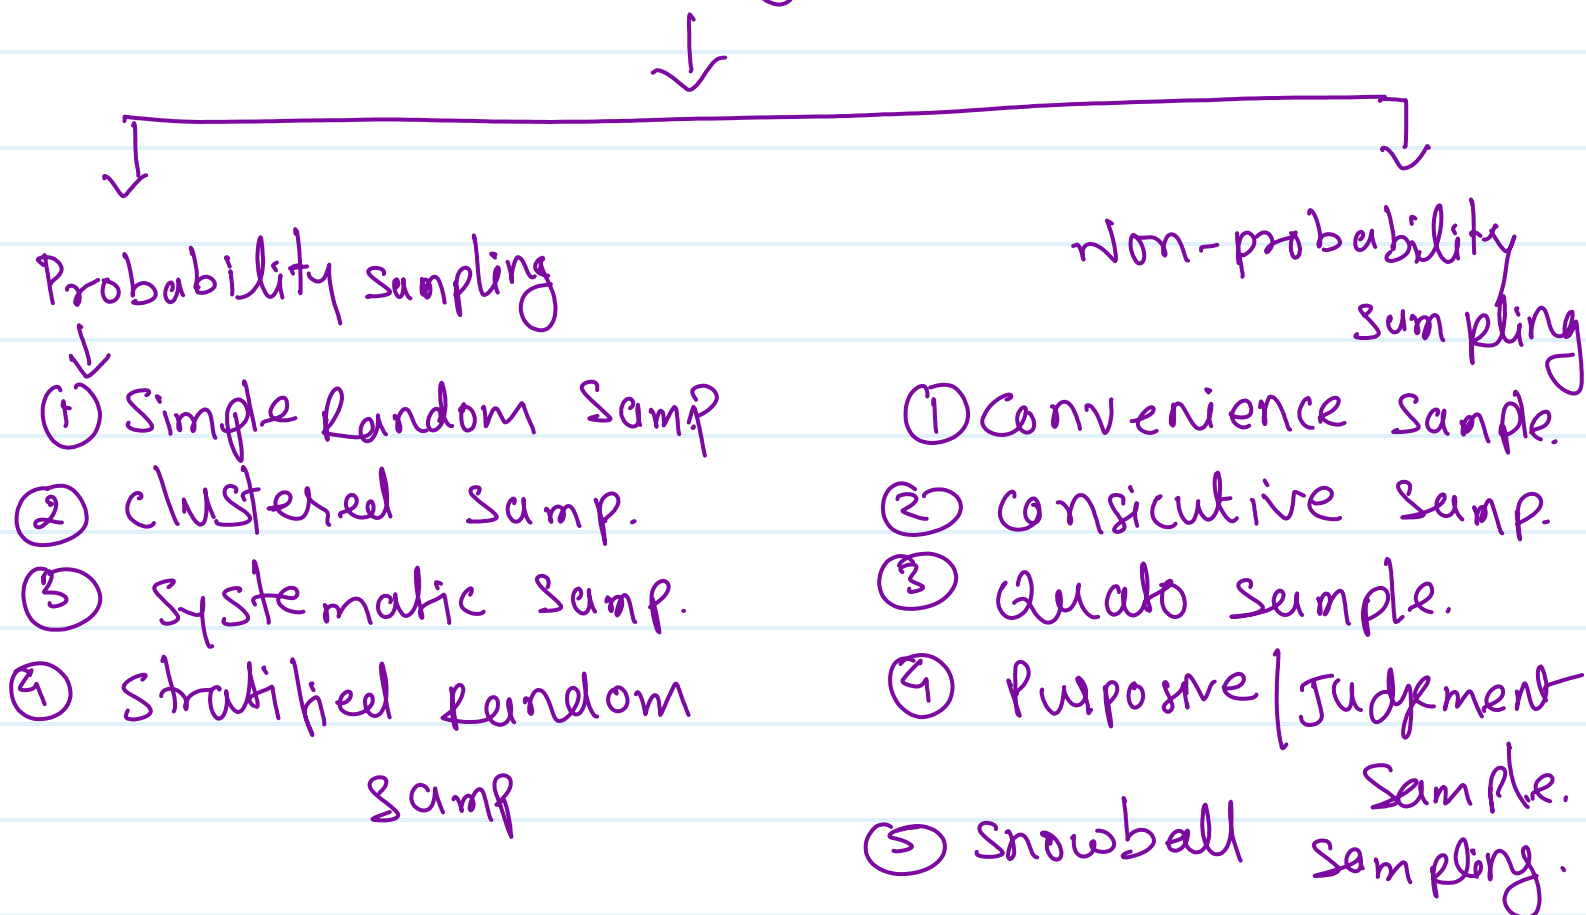 Probability sampling
① Simple Random Samp
② Clustered Samp.
③ Systematic Samp.
④ Stratified Random
Samp
Non-probability
sampling
① Convenience Sample.
② Consicutive Samp.
③ Quato Sample.
④ Purposive/Judgement
Sample.
⑤ Snowball Sampling.